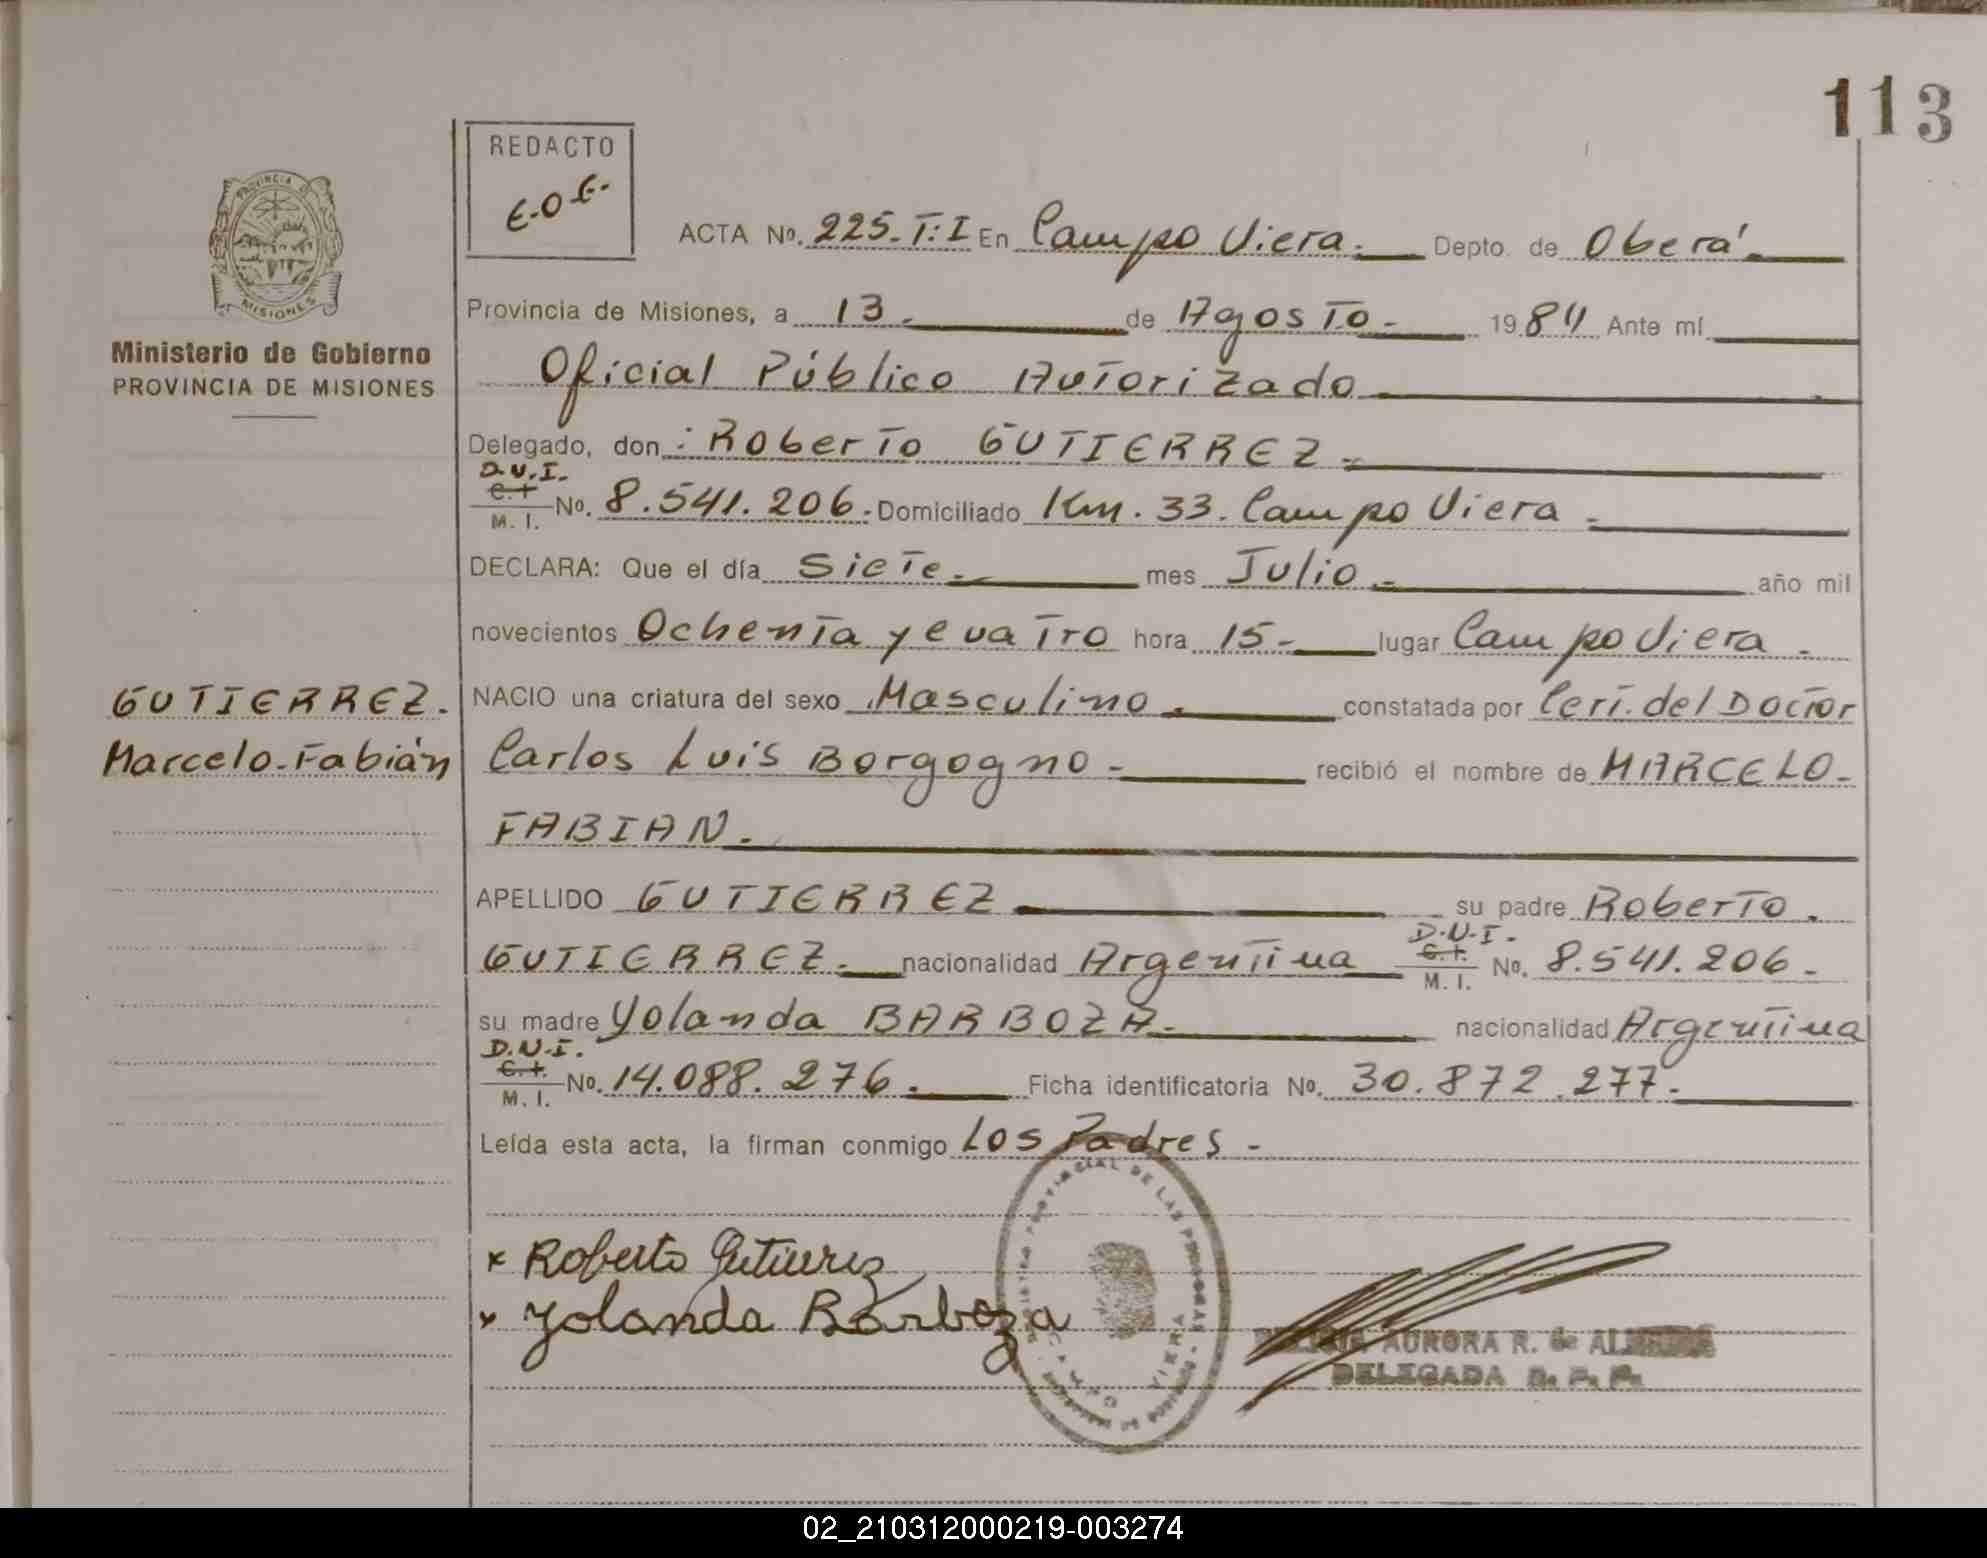 113
REDACTO
E.O.E.
PROVINCIA DE
MISIONES
Ministerio de Gobierno
PROVINCIA DE MISIONES
ACTA Nº. 225-T:I En Campo Viera.- Depto. de Oberá
Provincia de Misiones, a 13.- de Agosto.- 1984 Ante mí
Oficial Público Autorizado
Delegado, don: Roberto GUTIERREZ.-
D.N.I.
C.I.
M. I. No. 8.541.206. Domiciliado Km. 33. Campo Viera.-
DECLARA: Que el día Siete.- mes Julio.- año mil
novecientos Ochenta y cuatro hora 15.- lugar Campo Viera.
NACIO una criatura del sexo Masculino. constatada por Cert. del Doctor
Carlos Luis Borgogno.- recibió el nombre de MARCELO-
FABIAN.
GUTIERREZ.
Marcelo-Fabián
APELLIDO GUTIERREZ su padre Roberto.
GUTIERREZ.- nacionalidad Argentina D.N.I. C.I. M. I. No. 8.541.206.-
su madre Yolanda BARBOZA.- nacionalidad Argentina
D.N.I.
C.I.
M. I. No. 14.088.276.- Ficha identificatoria No. 30.872.277.-
Leída esta acta, la firman conmigo Los Padres.-
x Roberto Gutierrez
x Yolanda Barboza
PROVINCIAL DE LAS PERSONAS
CAMPO VIERA
AURORA R. de
DELEGADA R. P. P.
02_210312000219-003274